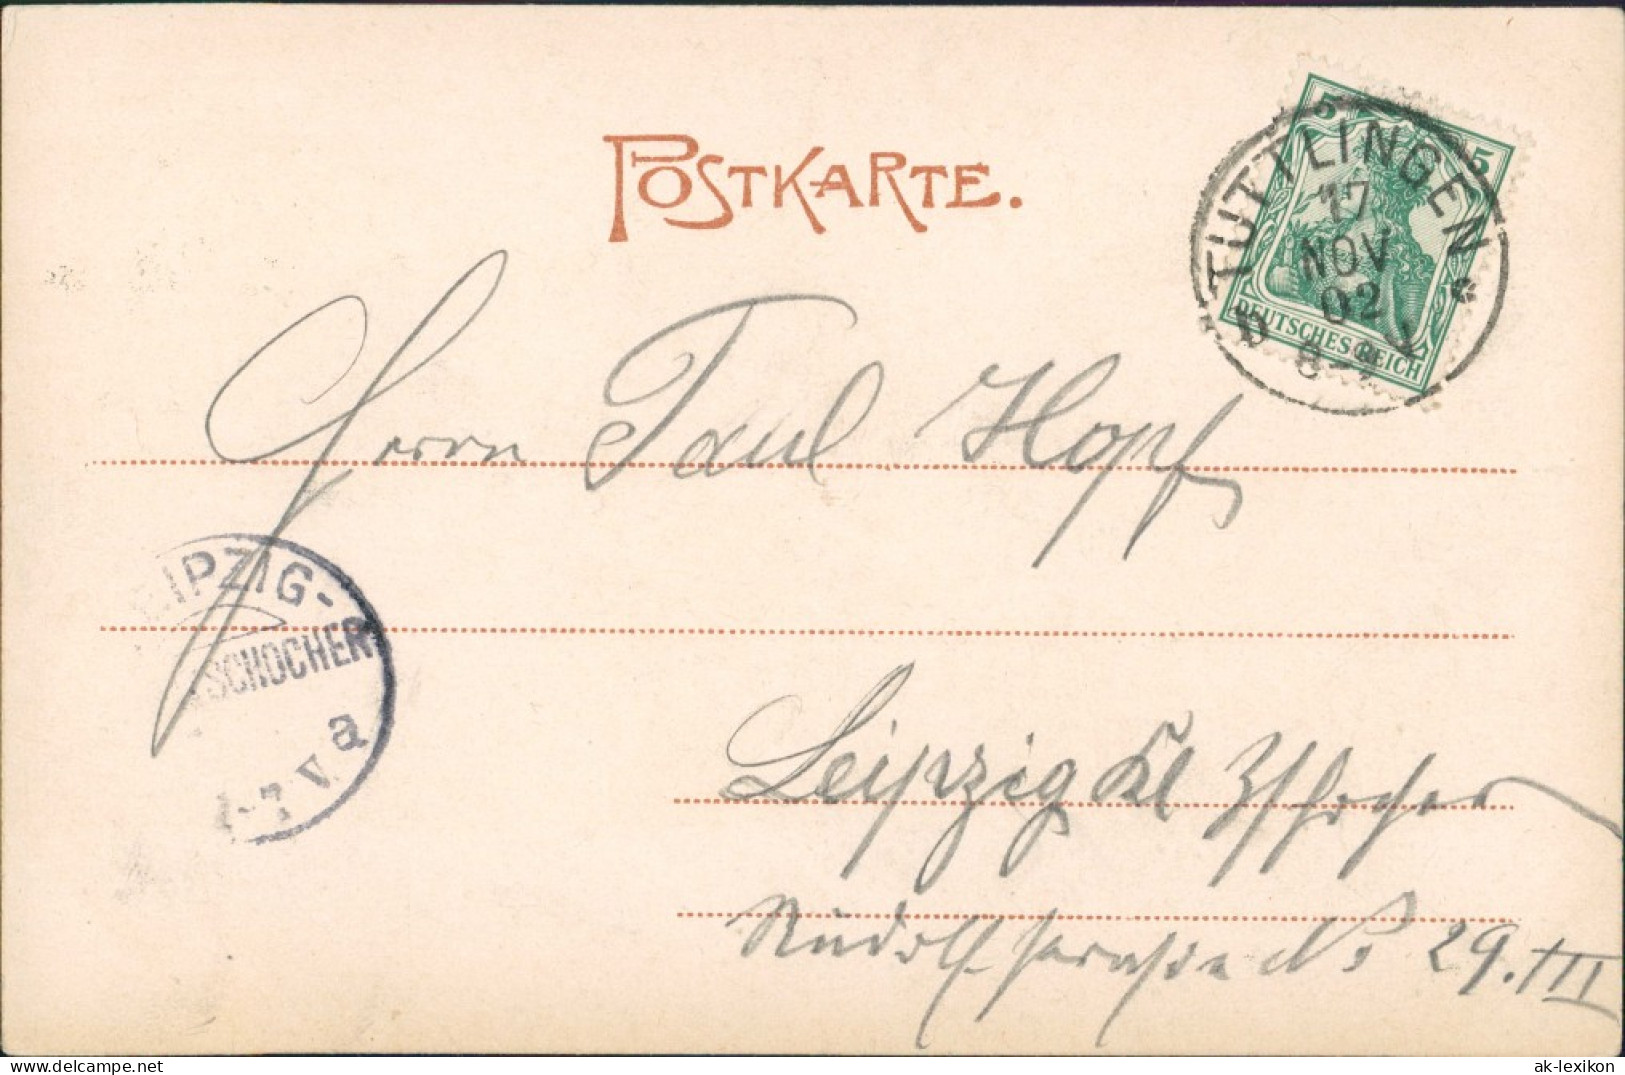 POSTKARTE.
5 5
DEUTSCHES REICH
TUTTLINGEN
17
NOV
02
Herrn Paul Hopf
LEIPZIG-
ZSCHOCHER
V a
Leipzig Kl Zschocher
Rudolfstrasse No 29. III
ak-lexikon